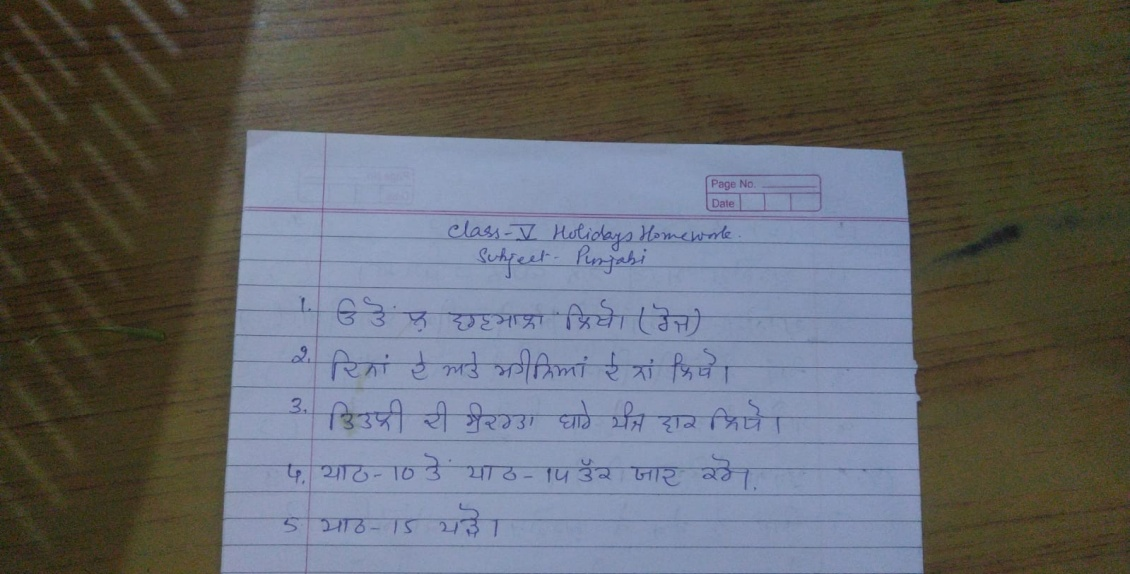 Page No.
Date
Class-V Holidays Homework.
Subject- Punjabi
1. ੳ ਤੋਂ ਲ਼ ਵਰਣਮਾਲਾ ਲਿਖੋ। (ਰੋਜ)
2. ਦਿਨਾਂ ਦੇ ਅਤੇ ਮਹੀਨਿਆਂ ਦੇ ਨਾਂ ਲਿਖੋ।
3. ਤਿਤਲੀ ਦੀ ਸੁੰਦਰਤਾ ਬਾਰੇ ਪੰਜ ਵਾਕ ਲਿਖੋ।
4. ਪਾਠ-10 ਤੋਂ ਪਾਠ-14 ਤੱਕ ਯਾਦ ਕਰੋ।
5 ਪਾਠ-15 ਪੜ੍ਹੋ।